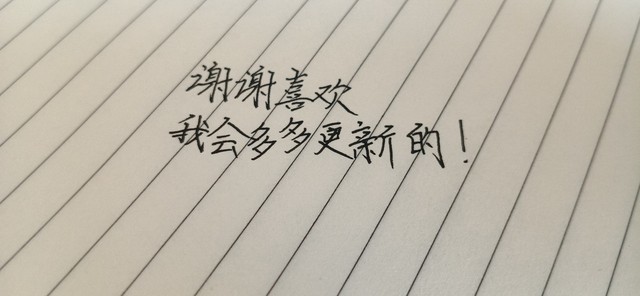 谢谢喜欢
我会多多更新的！